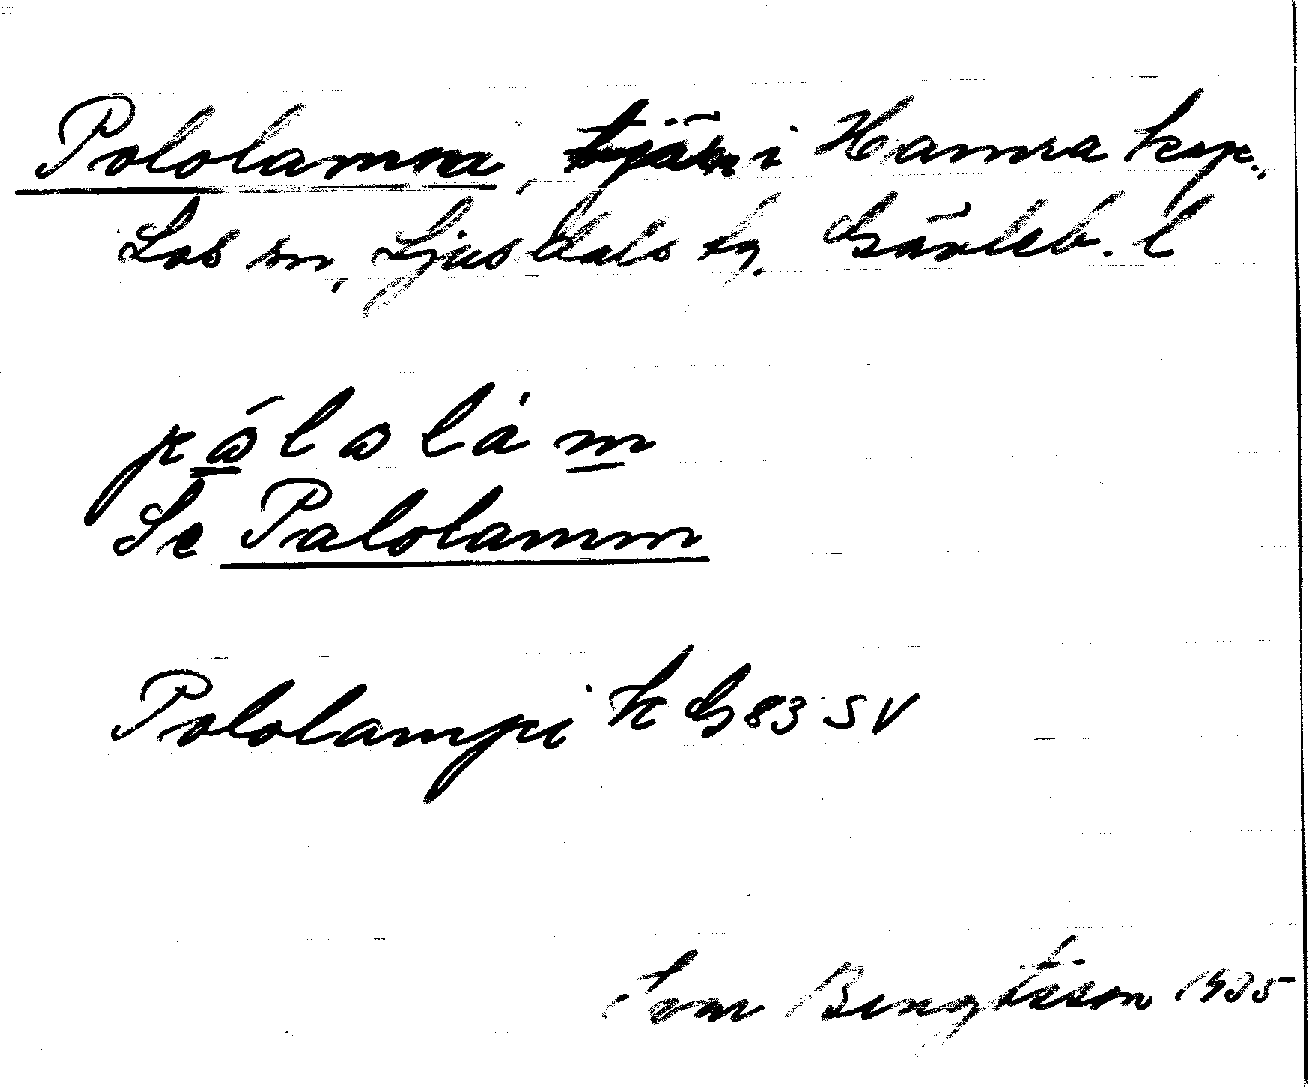 Pololamm, tjärn i Hamra kyp.,
Los sn, Ljusdals tg. Gävleb. l
pålolàm
Se Palolamm
Pololampi k G 83 SV
Bengtsson 1935